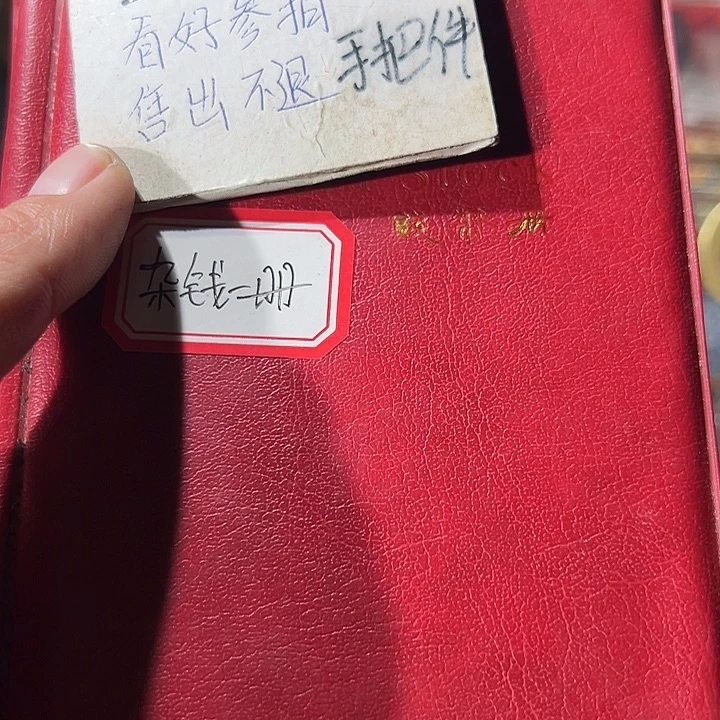 看好参拍
售出不退 手把件
杂钱一册